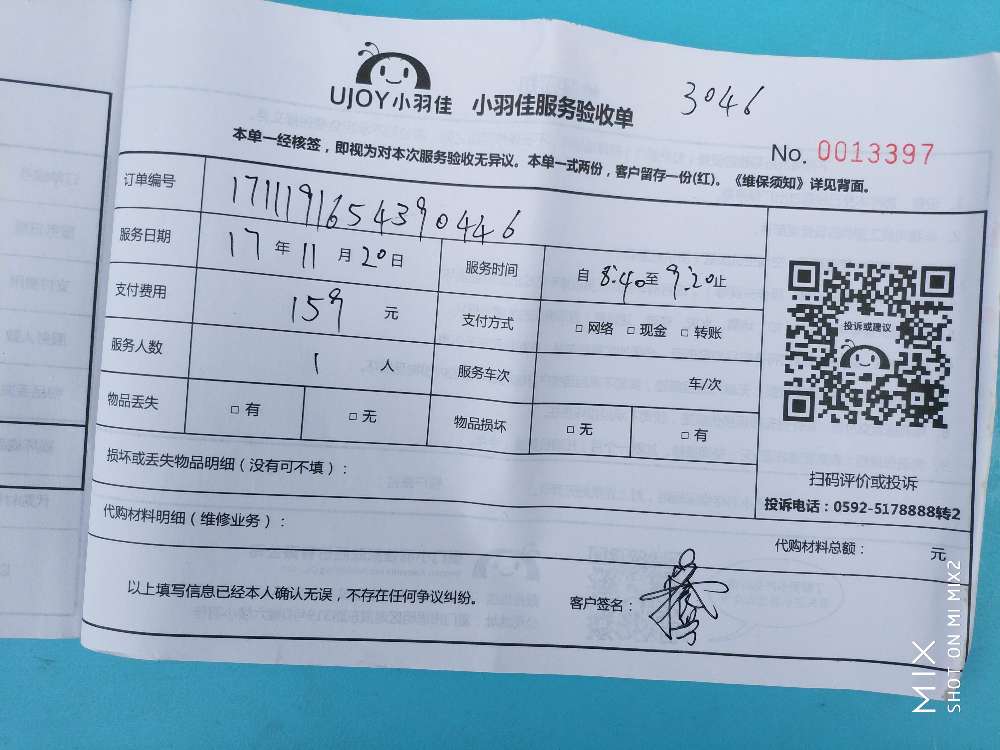 UJOY小羽佳 小羽佳服务验收单
3046
No. 0013397
本单一经核签，即视为对本次服务验收无异议。本单一式两份，客户留存一份(红)。《维保须知》详见背面。
订单编号 1711191654390446
服务日期 17年11月20日 服务时间 自8:40至9:20止
支付费用 159 元 支付方式 □网络 □现金 □转账
服务人数 1 人 服务车次 车/次
物品丢失 □有 □无 物品损坏 □无 □有
投诉或建议
扫码评价或投诉
投诉电话：0592-5178888转2
损坏或丢失物品明细（没有可不填）：
代购材料明细（维修业务）：
代购材料总额： 元
以上填写信息已经本人确认无误，不存在任何争议纠纷。 客户签名：
MIX
SHOT ON MI MIX2